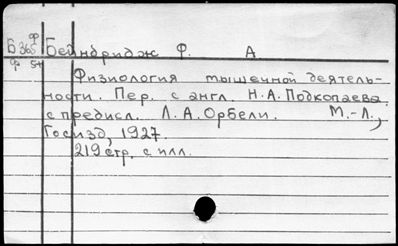 Б365ф Бейнбридж Ф. А.
ф 5+
Физиология мышечной деятель-
ности. Пер. с англ. Н.А. Подкопаева
с предисл. Л.А. Орбели. М.-Л.,
Госизд, 1927.
219 стр. с илл.